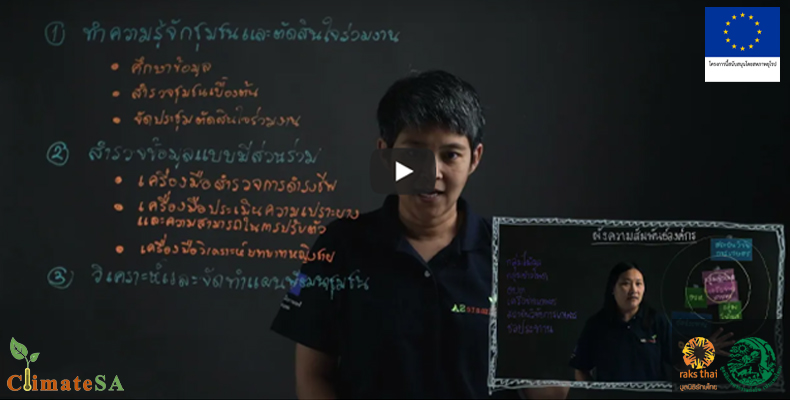 ① ทำความรู้จักชุมชนและตัดสินใจร่วมงาน
• ศึกษาข้อมูล
• สำรวจชุมชนเบื้องต้น
• จัดประชุมตัดสินใจร่วมงาน
② สำรวจข้อมูลแบบมีส่วนร่วม
• เครื่องมือสำรวจการดำรงชีพ
• เครื่องมือประเมินความเปราะบาง
และความสามารถในการปรับตัว
• เครื่องมือวิเคราะห์บทบาทหญิงชาย
③ วิเคราะห์และจัดทำแผนพัฒนาชุมชน
โครงการนี้สนับสนุนโดยสหภาพยุโรป
ผังความสัมพันธ์องค์กร
ClimateSA
raks thai
มูลนิธิรักษ์ไทย